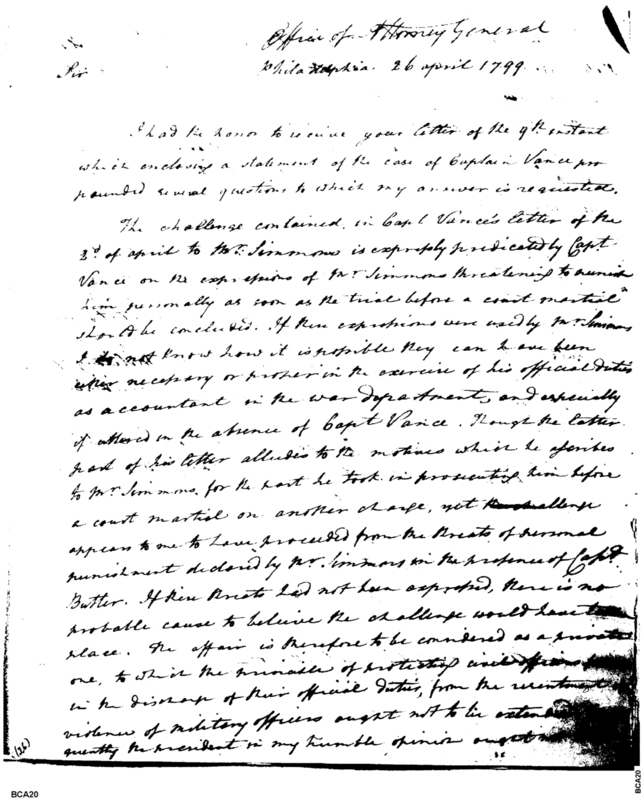 Office of Attorney General
Sir Philadelphia. 26 april 1799.
I had the honor to receive your letter of the 9th instant
which enclosing a statement of the case of Captain Vance pro
pounded several questions to which my answer is requested.
The challenge contained in Capt Vance's letter of the
2d of april to Mr. Simmons is expressly predicated by Capt
Vance on the expressions of Mr Simmons threatening to punish
him personally as soon as the trial before a court martial
should be concluded. If these expressions were used by Mr Simmons
I do not know how it is possible they can have been
either necessary or proper in the exercise of his official duties
as accountant in the war department, and especially
if uttered in the absence of Capt Vance. Though the latter
part of his letter alludes to the motives which he ascribes
to Mr Simmons for the part he took in prosecuting him before
a court martial on another charge, yet the challenge
appears to me to have proceeded from the threats of personal
punishment declared by Mr. Simmons in the presence of Capt
Butler. If these threats had not been expressed, there is no
probable cause to believe the challenge would have
place. The affair is therefore to be considered as a private
one, to which the principle of protecting civil officers
in the discharge of their official duties, from the
violence of military officers ought not to be
quently the president in my humble opinion ought
(26)
BCA20
BCA20